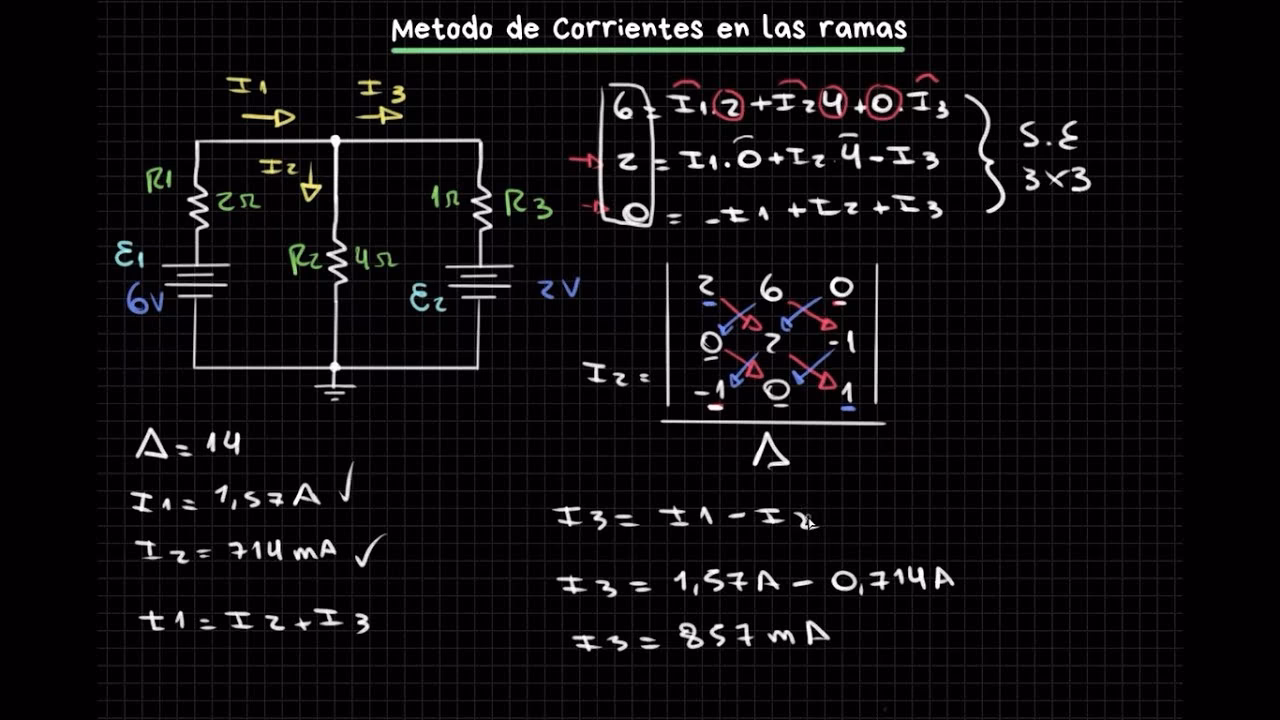 Metodo de Corrientes en las ramas
I1
I3
I2
R1
2Ω
1Ω
R3
ε1
6V
R2
4Ω
ε2
2V
6 = I1.2 + I2 4 + 0.I3
2 = I1.0 + I2 4 - I3
0 = -I1 + I2 + I3
S.E
3x3
2 6 0
0 2 -1
-1 0 1
I2 =
Δ
Δ = 14
I1 = 1,57A ✓
I2 = 714 mA ✓
I1 = I2 + I3
I3 = I1 - I2
I3 = 1,57A - 0,714A
I3 = 857 mA